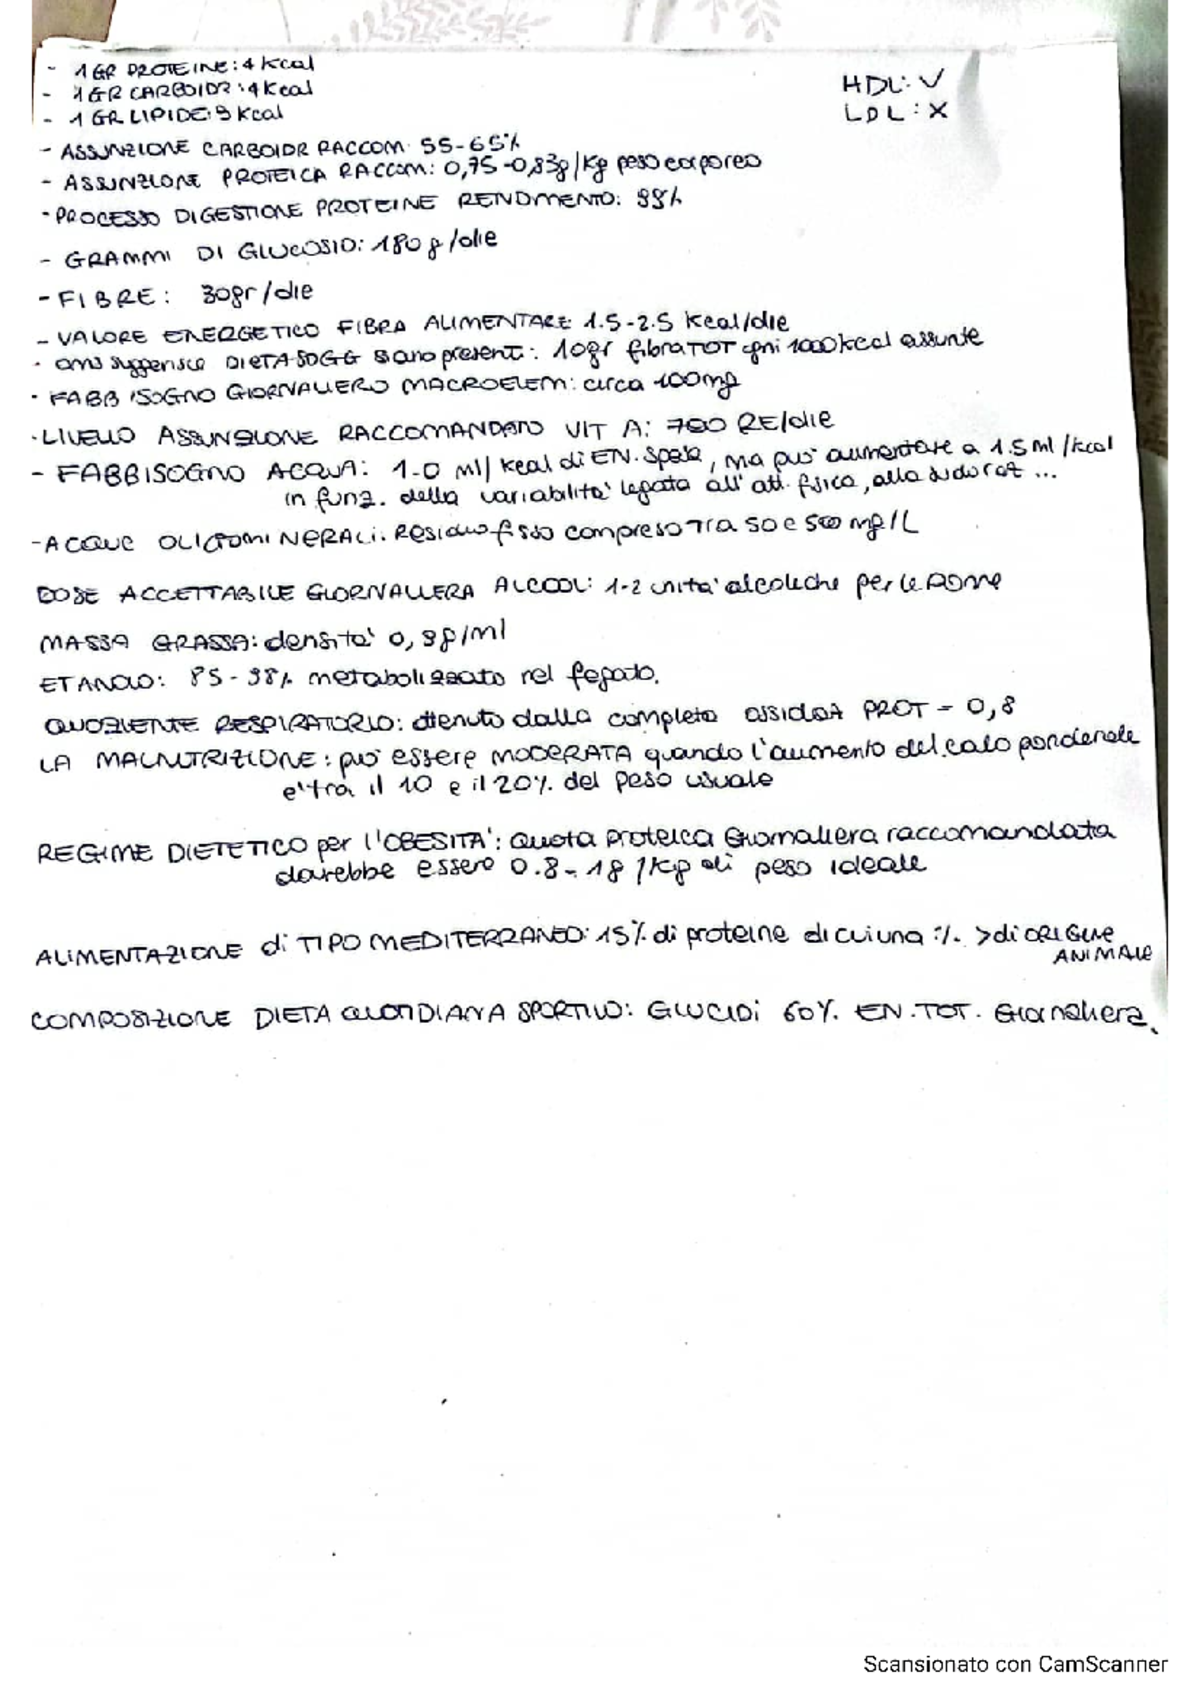 - 1 GR PROTEINE: 4 Kcal
- 1 GR CARBOIDR: 4 Kcal
- 1 GR LIPIDE: 9 Kcal
HDL: V
LDL: X
- ASSUNZIONE CARBOIDR RACCOM: 55-65%
- ASSUNZIONE PROTEICA RACCOM: 0,75-0,83g/Kg peso corporeo
- PROCESSO DIGESTIONE PROTEINE RENDIMENTO: 99%
- GRAMMI DI GLUCOSIO: 180 g/die
- FIBRE: 30gr/die
- VALORE ENERGETICO FIBRA ALIMENTARE 1.5-2.5 Kcal/die
· OMS suggerisce DIETA SOGG siano presenti: 10gr fibra TOT ogni 1000 kcal assunte
· FABBISOGNO GIORNALIERO MACROELEM: circa 100mg
· LIVELLO ASSUNZIONE RACCOMANDATO VIT A: 700 RE/die
- FABBISOGNO ACQUA: 1.0 ml/kcal di EN. spesa, ma può aumentare a 1.5 ml/kcal
in funz. della variabilità legata all'att. fisica, alla sudoraz...
- ACQUE OLIGOMINERALI: Residuo fisso compreso tra 50 e 500 mg/L
DOSE ACCETTABILE GIORNALIERA ALCOOL: 1-2 unità alcoliche per le DONNE
MASSA GRASSA: densità 0,9g/ml
ETANOLO: 85-98% metabolizzato nel fegato.
QUOZIENTE RESPIRATORIO: ottenuto dalla completa ossidaz PROT = 0,8
LA MALNUTRIZIONE: può essere MODERATA quando l'aumento del calo ponderale
e' tra il 10 e il 20% del peso usuale
REGIME DIETETICO per l'OBESITA': Quota proteica Giornaliera raccomandata
dovrebbe essere 0.8-1g/Kg di peso ideale
ALIMENTAZIONE di TIPO MEDITERRANEO: 15% di proteine di cui una % > di ORIGINE
ANIMALE
COMPOSIZIONE DIETA QUOTIDIANA SPORTIVO: GLUCIDI 60% EN. TOT. Giornaliera.
Scansionato con CamScanner